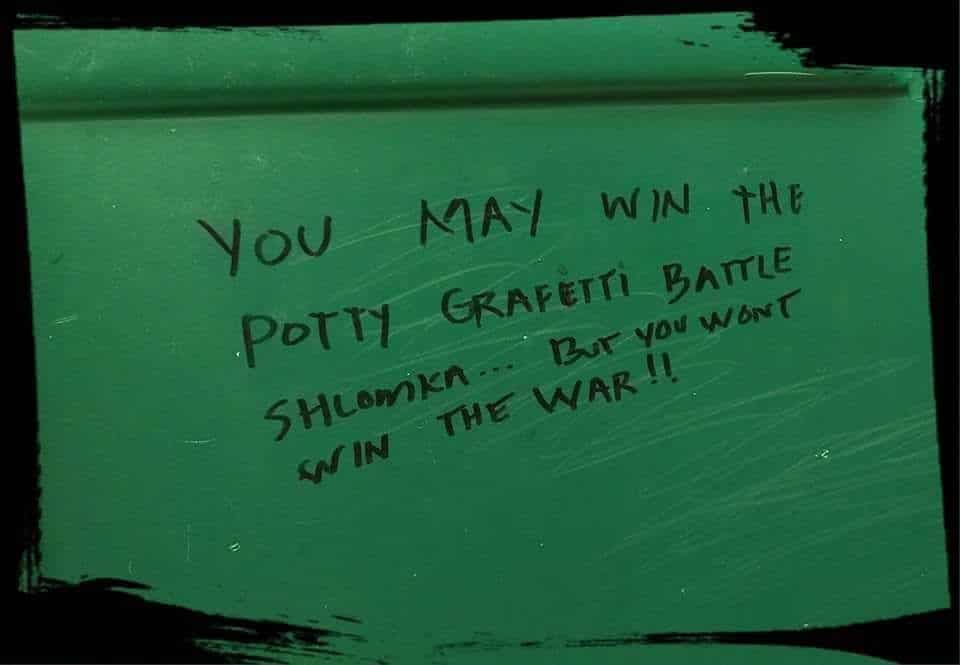 YOU MAY WIN THE
POTTY GRAFETTI BATTLE
SHLOMKA... BUT YOU WONT
WIN THE WAR!!